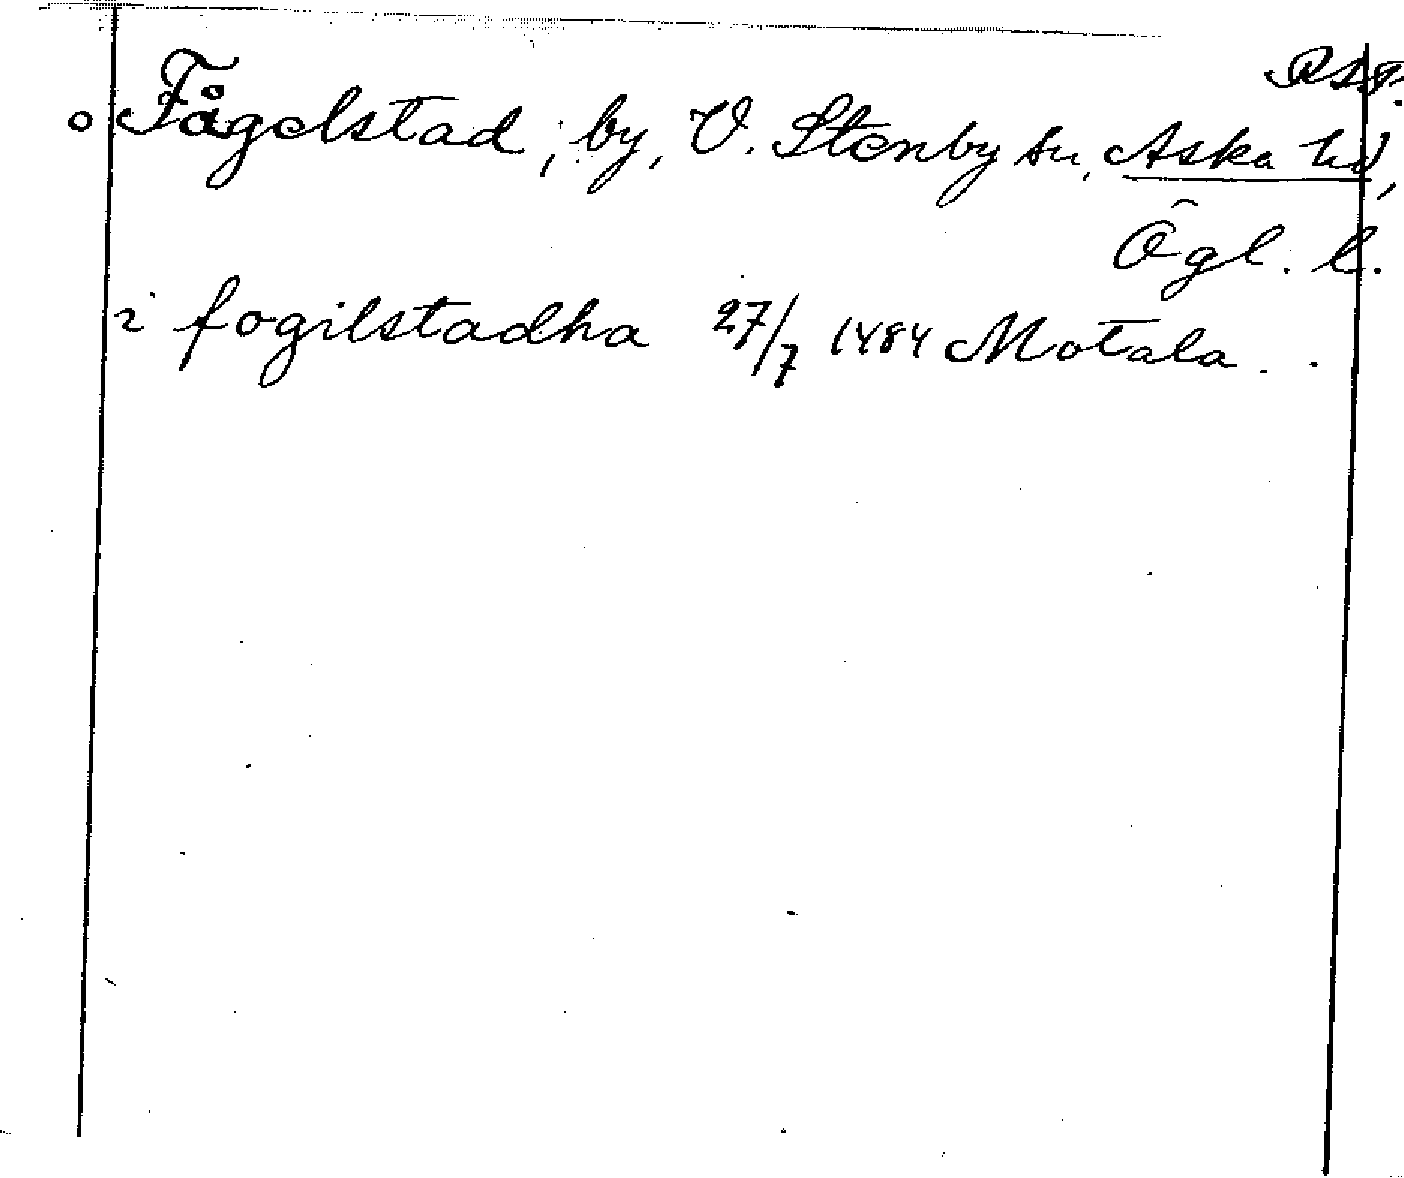 RAp.
o Fågelstad, by, V. Stenby sn, Aska hd,
Ögl. l.
i fogilstadha 27/7 1484 Motala. .